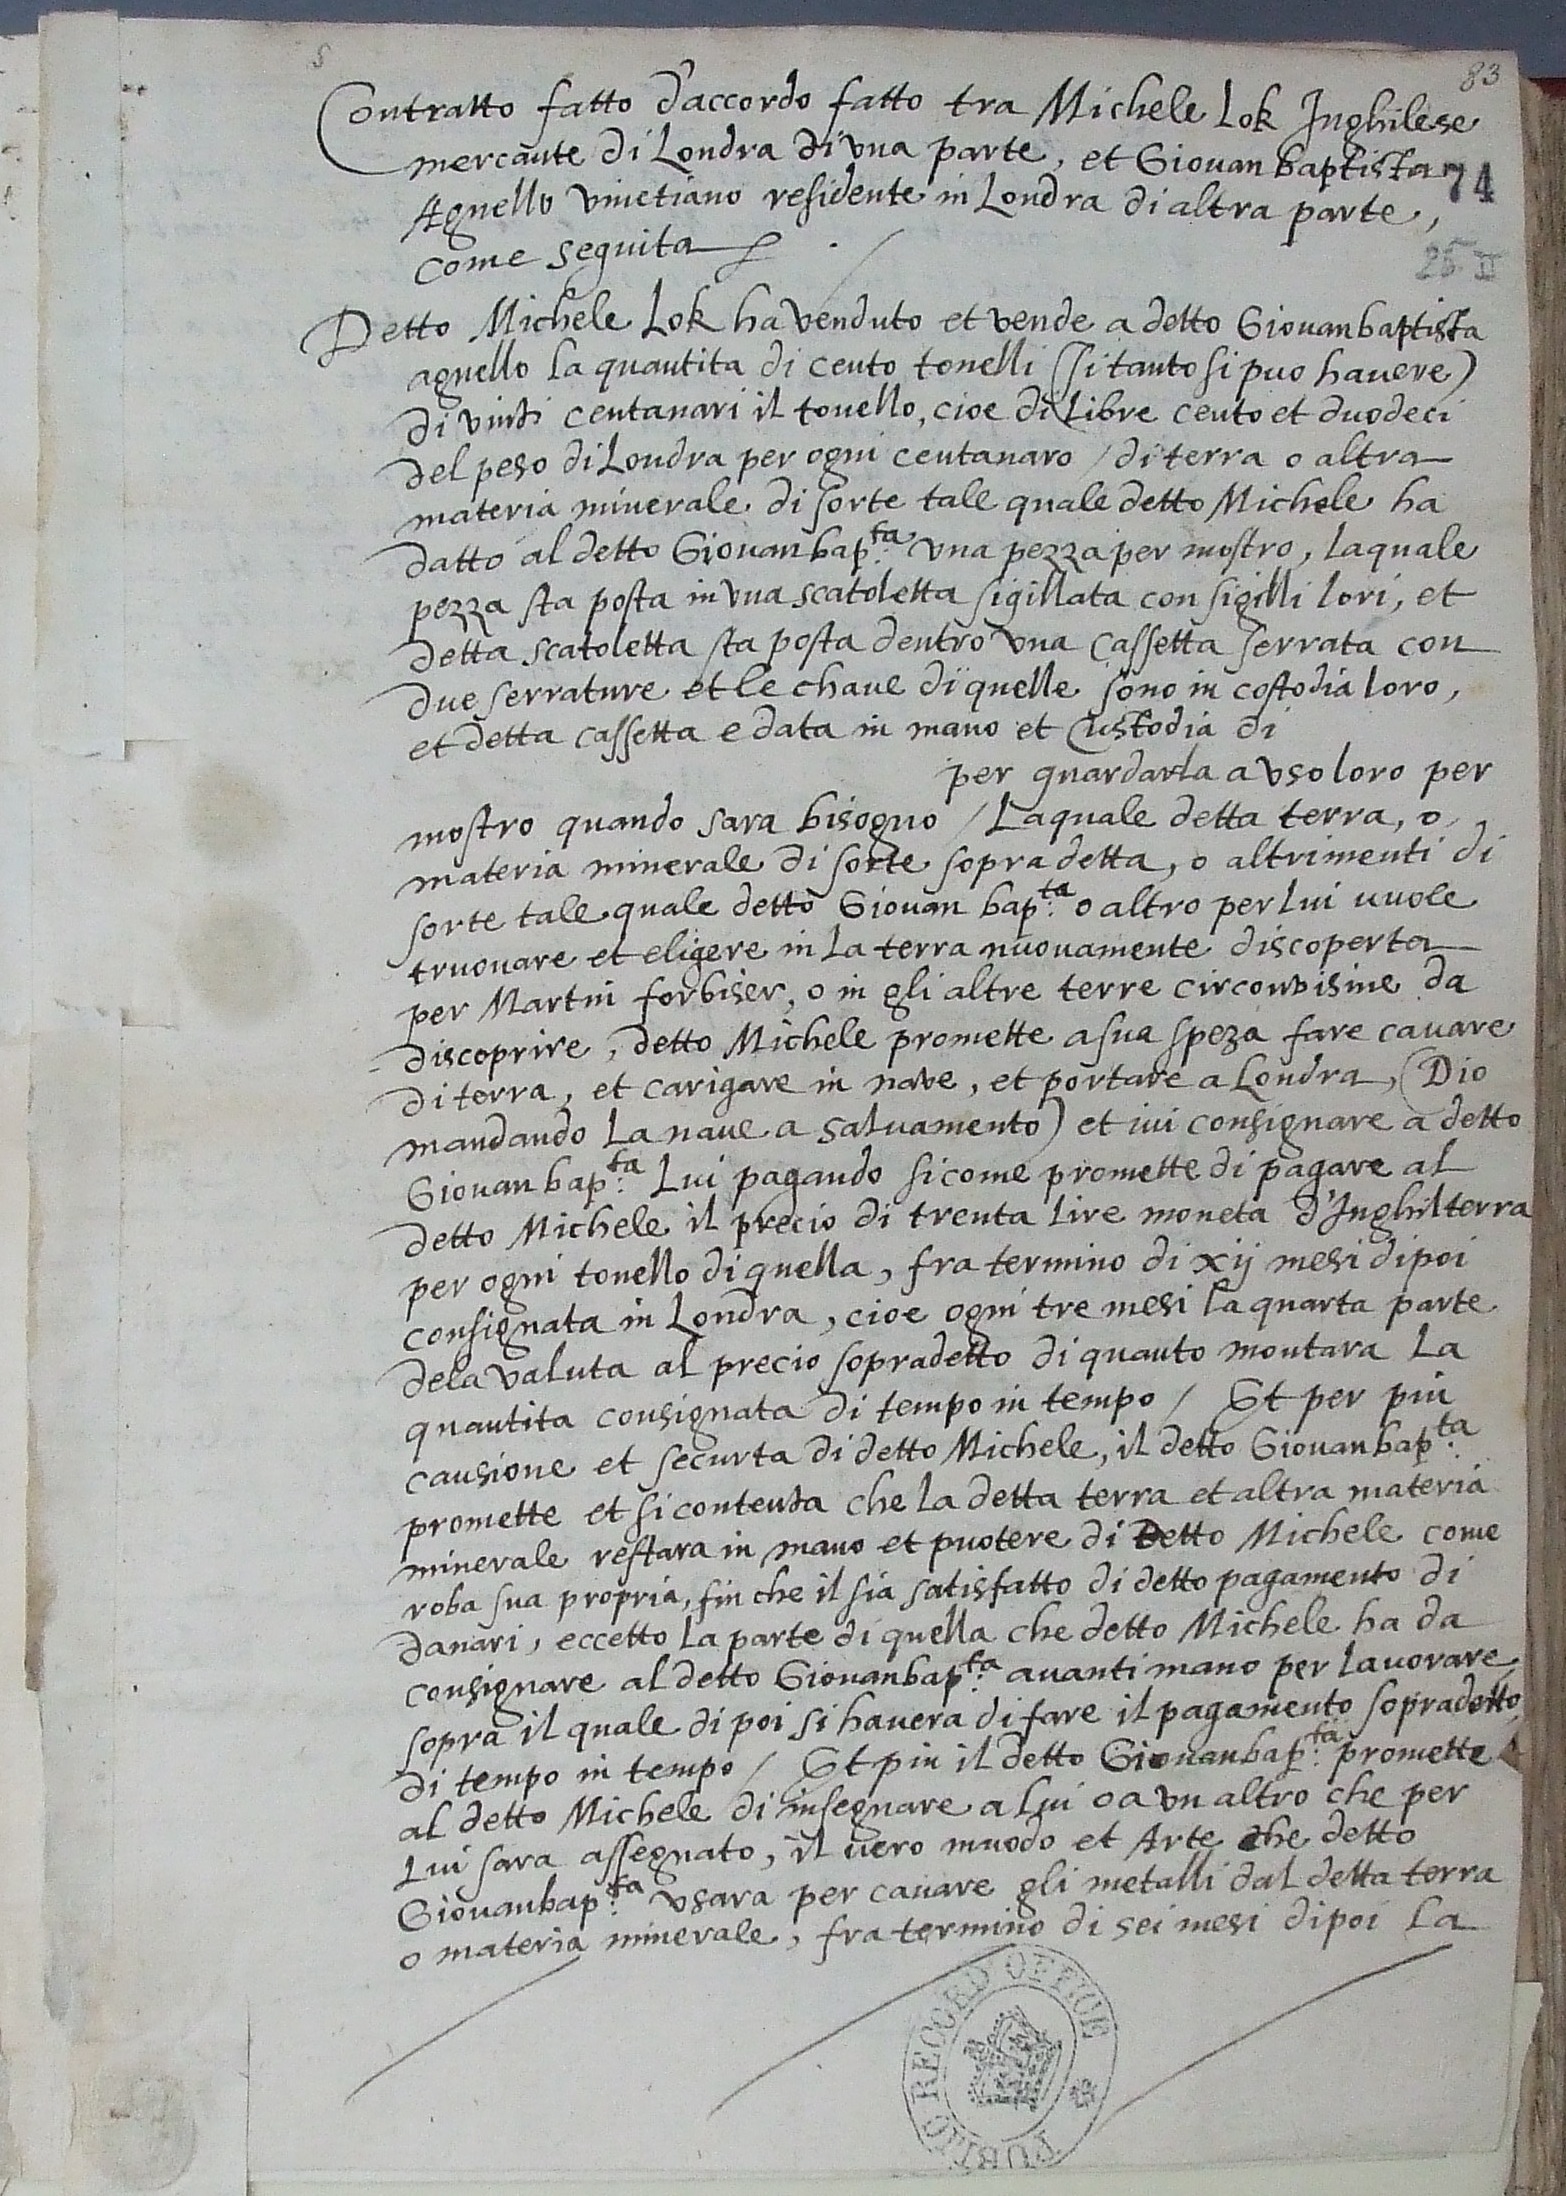 5
83
Contratto fatto d'accordo fatto tra Michele Lok Inghilese
mercante di Londra di vna parte, et Giouan baptista
74
Agnello vinetiano residente in Londra di altra parte,
come seguita
25 II
Detto Michele Lok ha venduto et vende a detto Giouanbaptista
agnello la quantita di cento tonelli (si tanto si puo hauere)
di vinti centanari il tonello, cioe di Libre cento et duodeci
del peso di Londra per ogni centanaro / di terra o altra
materia minerale di sorte tale quale detto Michele ha
datto al detto Giouanbap:ta vna pezza per mostro, laquale
pezza sta posta in vna scatoletta sigillata con sigilli lori, et
detta scatoletta sta posta dentro vna cassetta serrata con
due serrature et le chaue di quelle sono in costodia loro,
et detta cassetta e data in mano et Custodia di
per guardarla a vso loro per
mostro quando sara bisogno / Laquale detta terra, o
materia minerale di sorte sopra detta, o altrimenti di
sorte tale quale detto Giouan bap:ta o altro per Lui uuole
truouare et eligere in la terra nuouamente discoperta
per Martin forbiser, o in gli altre terre circonvisine da
discoprire, detto Michele promette a sua speza fare cauare
di terra, et carigare in nave, et portare a Londra, (Dio
mandando la naue a saluamento) et iui consignare a detto
Giouanbap:ta Lui pagando si come promette di pagare al
detto Michele il precio di trenta lire moneta d'Inghilterra
per ogni tonello di quella, fra termino di xij mesi dipoi
consignata in Londra, cioe ogni tre mesi la quarta parte
dela valuta al precio sopradetto di quanto montara La
quantita consignata di tempo in tempo / Et per piu
causione et securta di detto Michele, il detto Giouanbap:ta
promette et si contenta che la detta terra et altra materia
minerale restara in mano et puotere di Detto Michele come
roba sua propria, fin che il sia satisfatto di detto pagamento di
danari, eccetto la parte di quella che detto Michele ha da
consignare al detto Giouanbap:ta auanti mano per lauorare,
sopra il quale di poi si hauera di fare il pagamento sopradetto
di tempo in tempo / Et piu il detto Giouanbap:ta promette
al detto Michele di insegnare a lui o a vn altro che per
Lui sara assegnato, il uero muodo et Arte che detto
Giouanbap:ta vsara per cauare gli metalli dal detta terra
o materia minerale, fra termino di sei mesi dipoi la
PUBLIC RECORD OFFICE